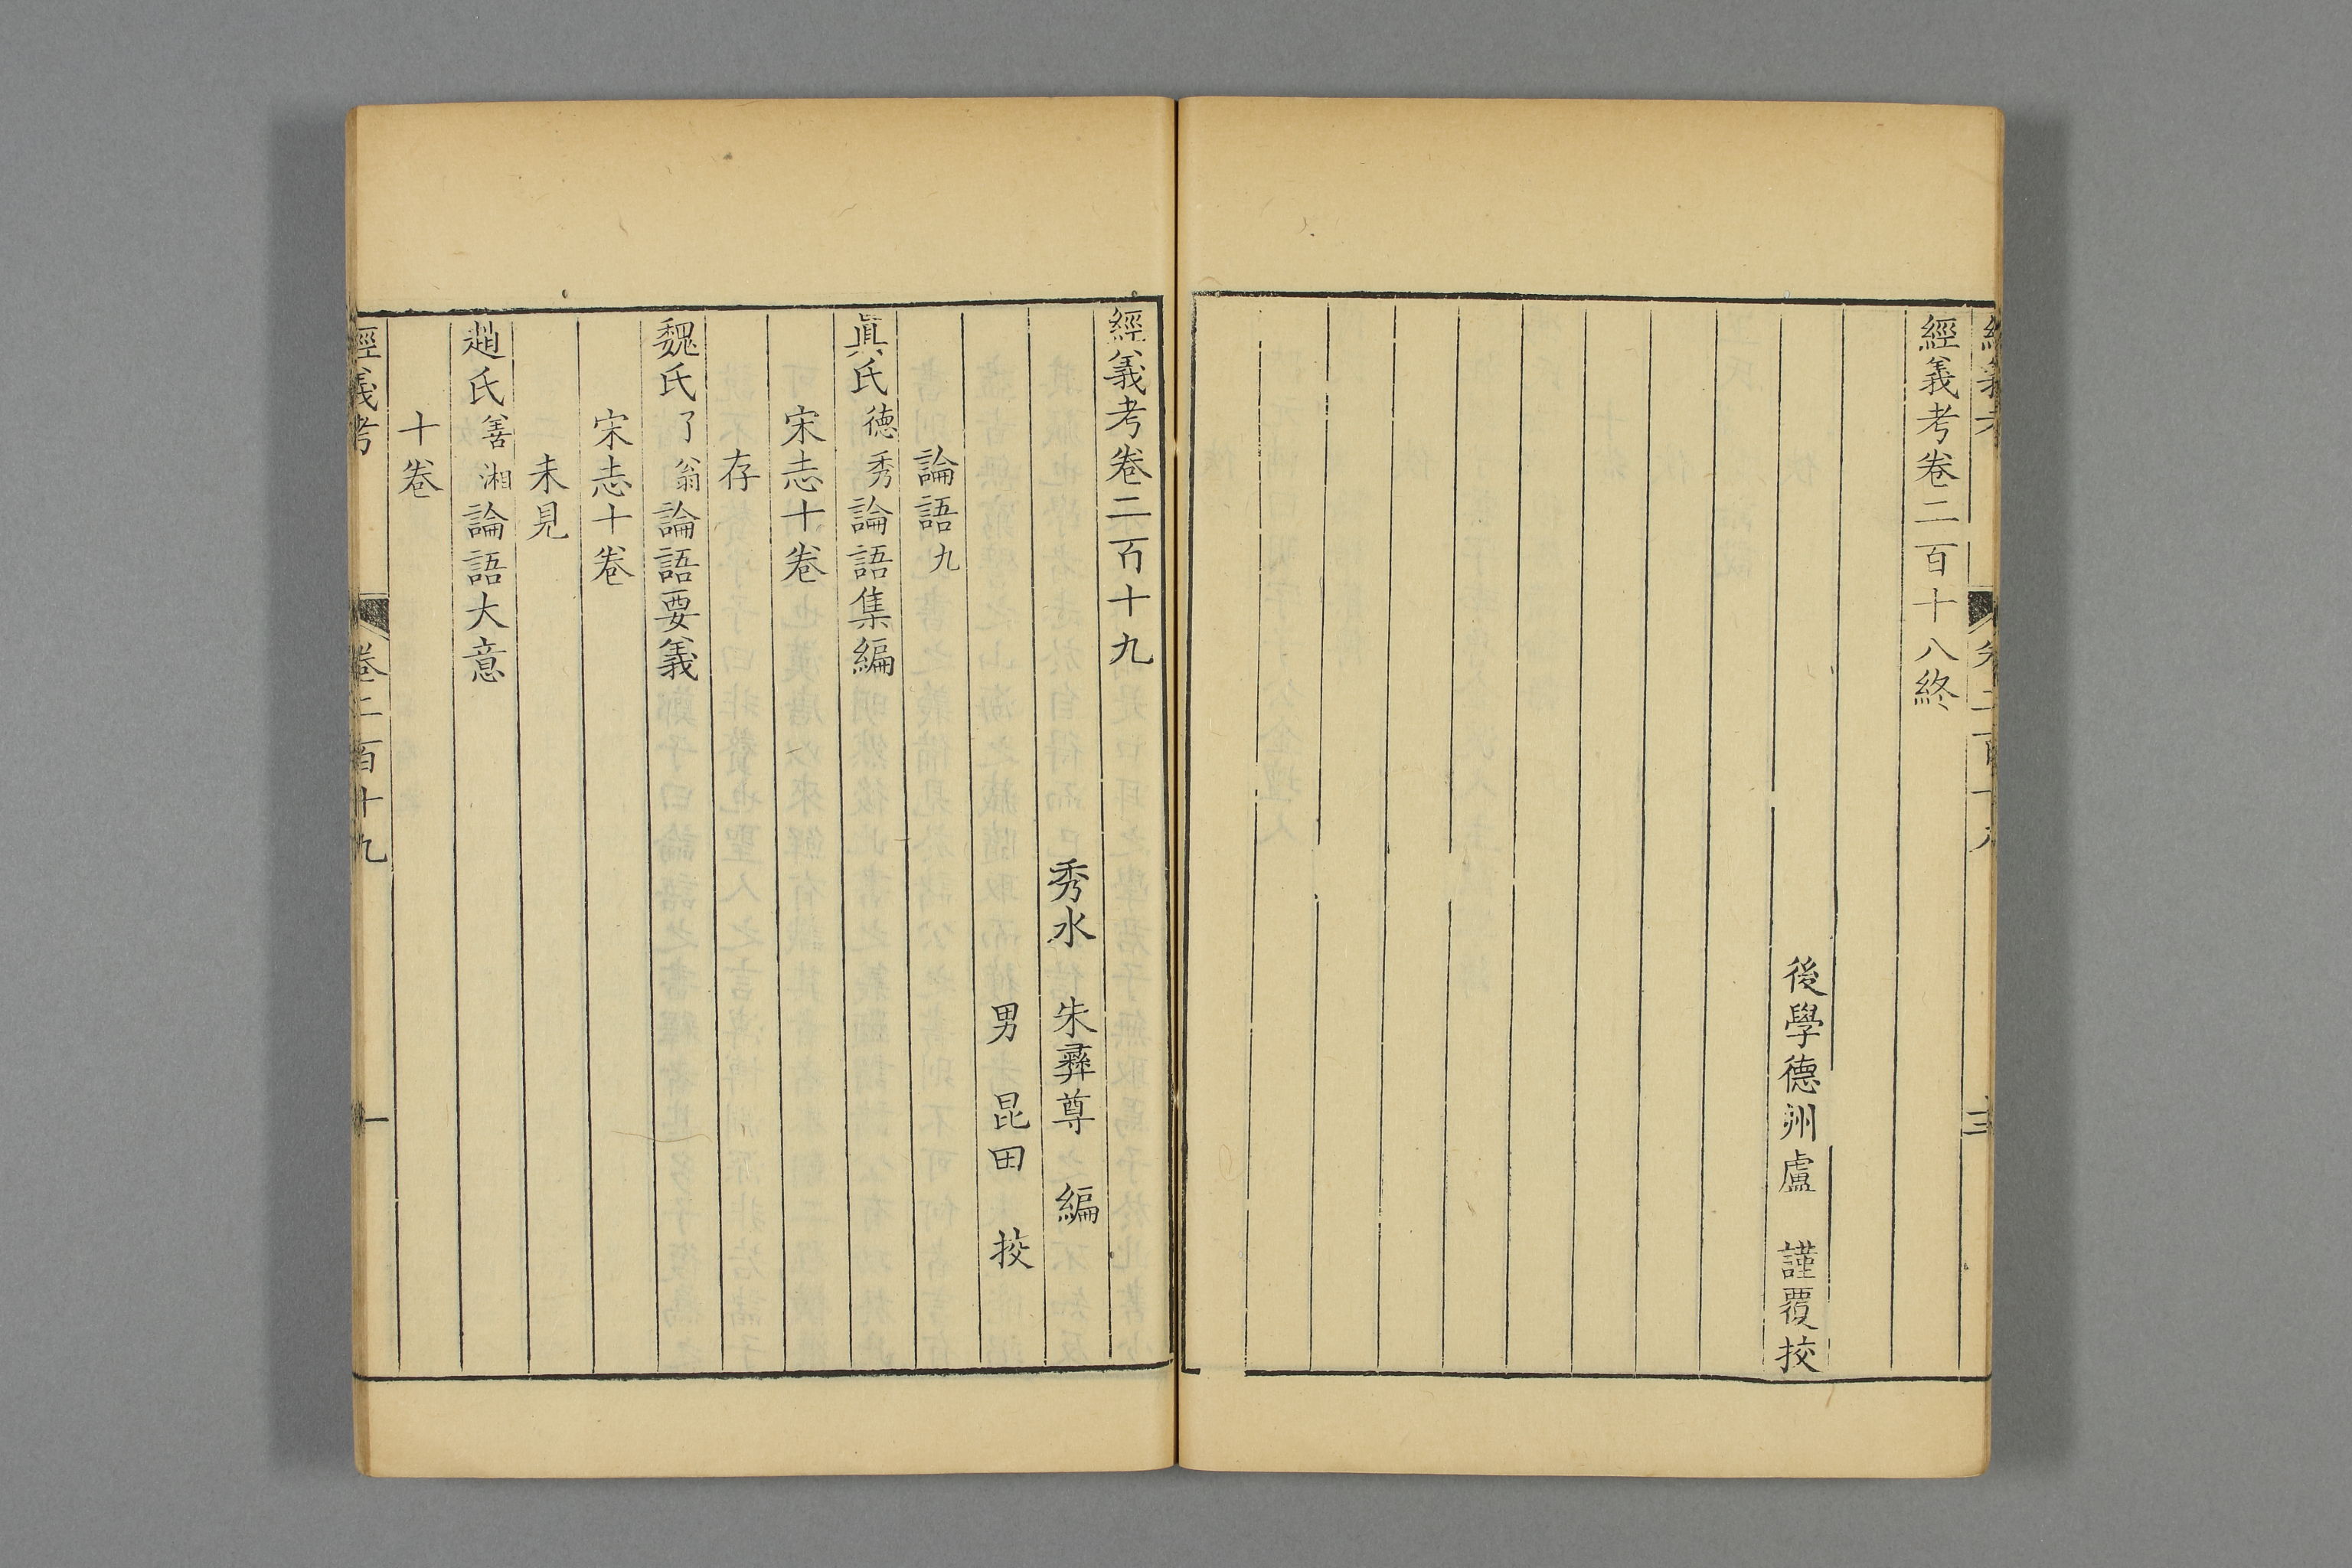 經義考卷二百十八終
後學德州盧　謹覆挍
經義考卷二百十九
秀水　朱彝尊　編
男　昆田　挍
論語九
眞氏德秀論語集編
宋志十卷
存
魏氏了翁論語要義
宋志十卷
未見
趙氏善湘論語大意
十卷
經義考　卷二百十九　一